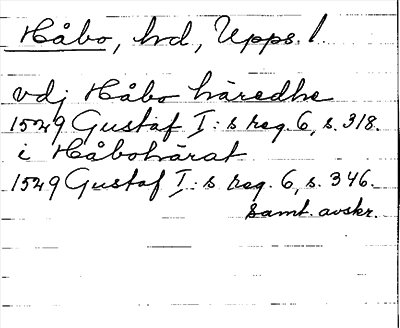 Håbo, hd, Upps. l.
vdj Håbo häredhe
1529 Gustaf I:s reg. 6, s. 318.
i Håbohärat
1529 Gustaf I:s reg. 6, s. 346.
Samt. avskr.